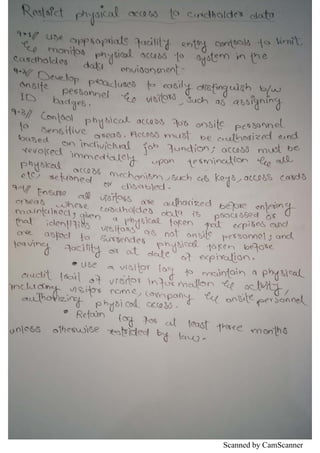 Restrict physical access to cardholder data
9.1// use appropriate facility entry controls to limit
& monitor physical access to system in the
cardholder data environment.
9.2// Develop procedures to easily distinguish b/w
onsite personnel & visitors, such as assigning
ID badges.
9.3// Control physical access for onsite personnel
to sensitive areas. Access must be authorized and
based on individual job function; access must be
revoked immediately upon termination & all
physical access mechanism, such as keys, access cards
etc returned or disabled.
9.4// Ensure all visitors are authorized before entering
areas where cardholder data is processed or
maintained; given a physical token that expires and
that identifies visitors as not onsite personnel; and
are asked to surrender physical token before
leaving facility or at date of expiration.
• use a visitor log to maintain a physical
audit trail of visitor information & activity,
including visitor name, company & onsite personnel
authorizing physical access.
• Retain log for at least three months
unless otherwise restricted by law.
Scanned by CamScanner